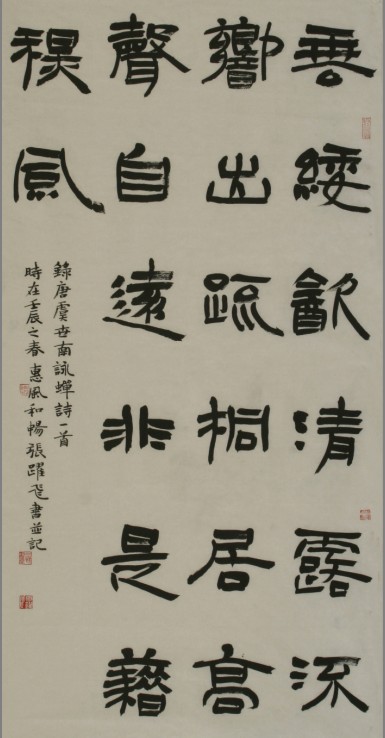 垂緌飲清露流
響出疏桐居高
聲自遠非是藉
秋風
錄唐虞世南詠蟬詩一首
時在壬辰之春惠風和暢張躍飛書並記